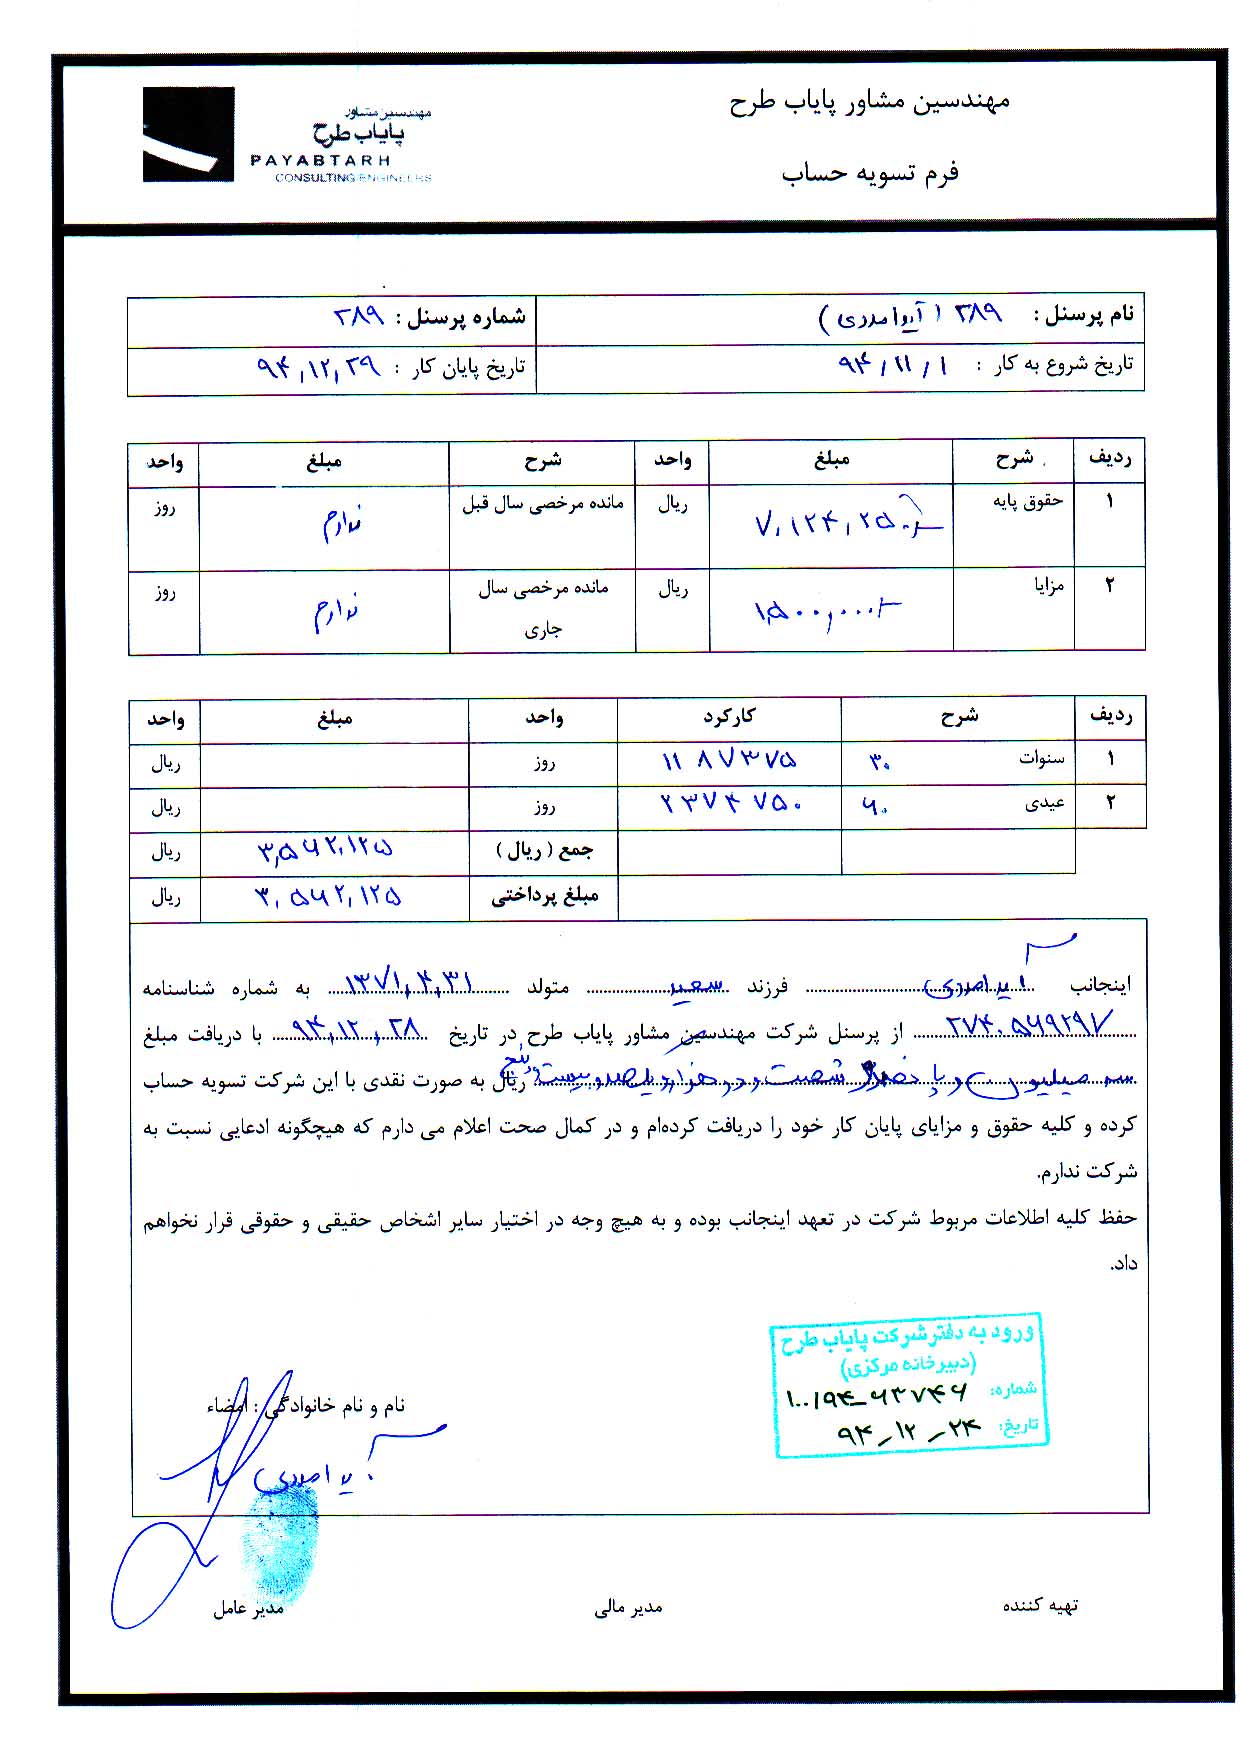 مهندسین مشاور پایاب طرح
مهندسین مشاور
پایاب طرح
PAYABTARH
CONSULTING ENGINEERS
فرم تسویه حساب
نام پرسنل : ۳۸۹ ( )
شماره پرسنل : ۳۸۹
تاریخ شروع به کار : ۹۴/۱۱/۱
تاریخ پایان کار : ۹۴,۱۲,۲۹
ردیف شرح مبلغ واحد شرح مبلغ واحد
۱ حقوق پایه ۷,۱۲۴,۲۵۰ ریال مانده مرخصی سال قبل ندارم روز
۲ مزایا ۱,۵۰۰,۰۰۰ ریال مانده مرخصی سال جاری ندارم روز
ردیف شرح کارکرد واحد مبلغ واحد
۱ سنوات ۳۰ ۱۱۸۷۳۷۵ روز ریال
۲ عیدی ۶۰ ۲۳۷۴۷۵۰ روز ریال
جمع ( ریال ) ۳,۵۶۲,۱۲۵ ریال
مبلغ پرداختی ۳,۵۶۲,۱۲۵ ریال
اینجانب فرزند سعید متولد ۱۳۷۱,۴,۳۱ به شماره شناسنامه
۲۷۴۰۵۶۹۲۹۷ از پرسنل شرکت مهندسین مشاور پایاب طرح در تاریخ ۹۴,۱۲,۲۸ با دریافت مبلغ
سه میلیون و پانصد و شصت و دو هزار و یکصد و بیست و پنج ریال به صورت نقدی با این شرکت تسویه حساب
کرده و کلیه حقوق و مزایای پایان کار خود را دریافت کرده‌ام و در کمال صحت اعلام می دارم که هیچگونه ادعایی نسبت به
شرکت ندارم.
حفظ کلیه اطلاعات مربوط شرکت در تعهد اینجانب بوده و به هیچ وجه در اختیار سایر اشخاص حقیقی و حقوقی قرار نخواهم
داد.
ورود به دفتر شرکت پایاب طرح
(دبیرخانه مرکزی)
شماره: ۱۰۰/۹۴-۶۲۷۴۶
تاریخ: ۹۴-۱۲-۲۴
نام و نام خانوادگی : امضاء
تهیه کننده مدیر مالی مدیر عامل